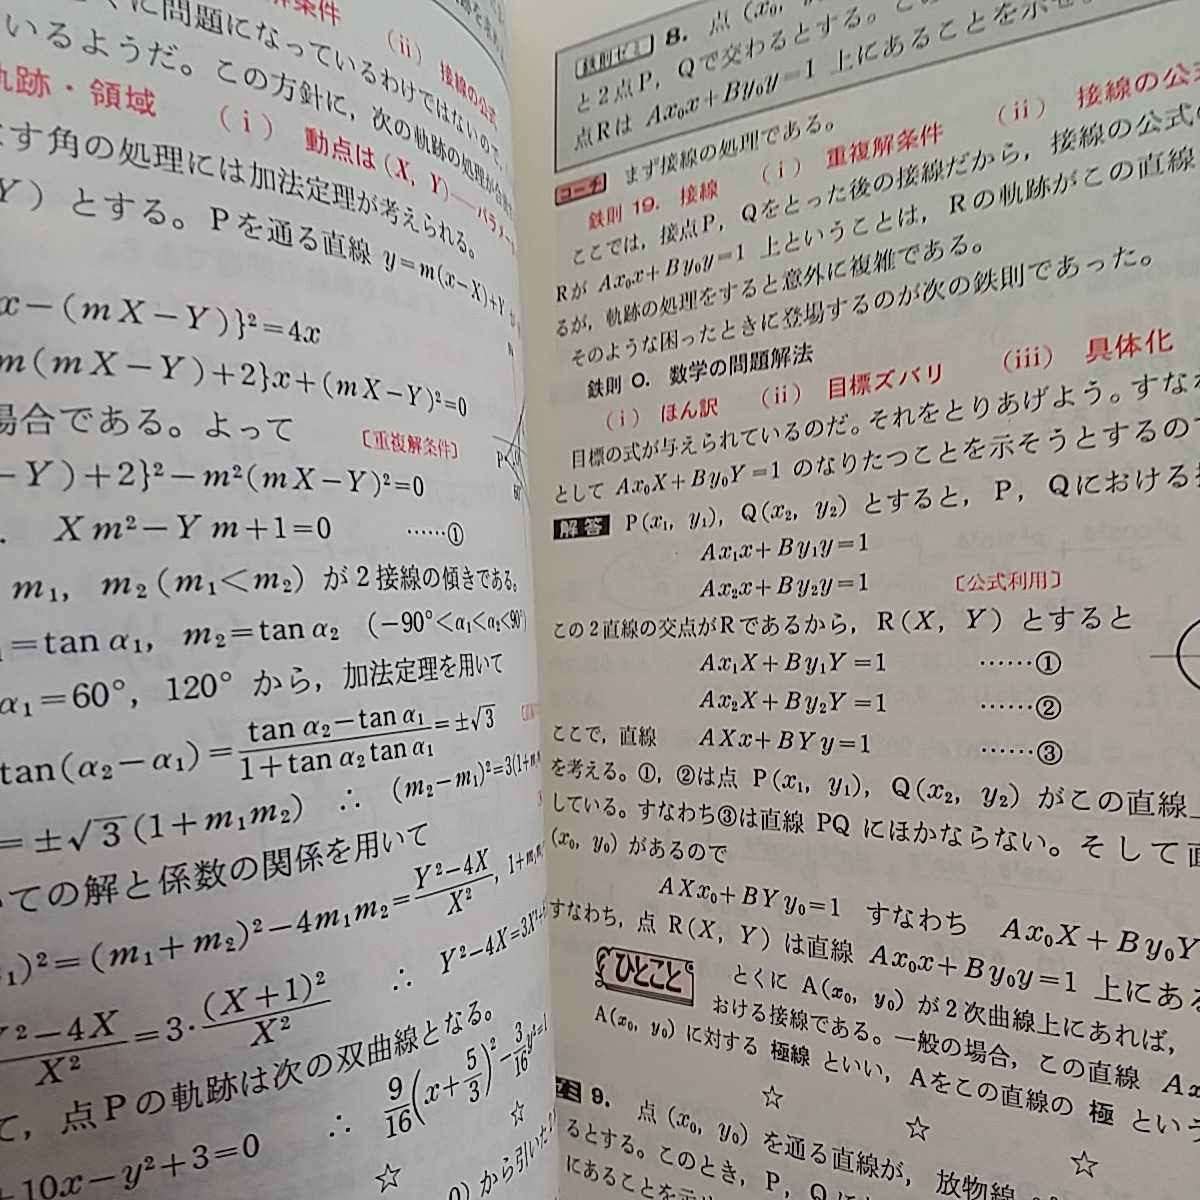 解条件
(ii) 接線の公式
くに問題になっているわけではないので,
いるようだ。この方針に, 次の軌跡の処理が
軌跡・領域 (i) 動点は (X, Y)—パラメー
す角の処理には加法定理が考えられる。
Y) とする。Pを通る直線 y=m(x−X)+Y
x−(mX−Y)}²=4x
m(mX−Y)+2}x+(mX−Y)²=0
場合である。よって 〔重複解条件〕
−Y)+2}²−m²(mX−Y)²=0
Xm²−Ym+1=0 ……①
m₁, m₂(m₁<m₂) が2接線の傾きである。
=tan α₁, m₂=tan α₂ (−90°<α₁<α₂<90°)
α₁=60°, 120° から, 加法定理を用いて
tan(α₂−α₁)=(tan α₂−tan α₁)/(1+tan α₂ tan α₁)=±√3
=±√3(1+m₁m₂) ∴ (m₂−m₁)²=3(1+m
ての解と係数の関係を用いて
₁)²=(m₁+m₂)²−4m₁m₂=(Y²−4X)/X², 1+m₁m
Y²−4X/X²=3·(X+1)²/X² ∴ Y²−4X=3X²+
て, 点Pの軌跡は次の双曲線となる。
+10x−y²+3=0 ∴ 9/16(x+5/3)²−3/16y²=1
☆ ☆
0) から引いた
P
60°
鉄則ゼミ 8. 点 (x₀,
と2点P, Qで交わるとする。
点Rは Ax₀x+By₀y=1 上にあることを示せ。
コーチ まず接線の処理である。
鉄則 19. 接線 (i) 重複解条件 (ii) 接線の公
ここでは, 接点P, Qをとった後の接線だから, 接線の公式の
Rが Ax₀x+By₀y=1 上ということは, Rの軌跡がこの直線
るが, 軌跡の処理をすると意外に複雑である。
そのような困ったときに登場するのが次の鉄則であった。
鉄則 0. 数学の問題解法
(i) ほん訳 (ii) 目標ズバリ (iii) 具体化
目標の式が与えられているのだ。それをとりあげよう。すなわ
として Ax₀X+By₀Y=1 のなりたつことを示そうとするので
解答 P(x₁, y₁), Q(x₂, y₂) とすると, P, Qにおける接
Ax₁x+By₁y=1
Ax₂x+By₂y=1 〔公式利用〕
この2直線の交点がRであるから, R(X, Y) とすると
Ax₁X+By₁Y=1 ……①
Ax₂X+By₂Y=1 ……②
ここで, 直線 AXx+BYy=1 ……③
を考える。①, ②は点 P(x₁, y₁), Q(x₂, y₂) がこの直線上
している。すなわち③は直線 PQ にほかならない。そして直
(x₀, y₀) があるので
AXx₀+BYy₀=1 すなわち Ax₀X+By₀Y
すなわち, 点 R(X, Y) は直線 Ax₀x+By₀y=1 上にある
ひとこと とくに A(x₀, y₀) が2次曲線上にあれば,
おける接線である。一般の場合, この直線 Ax
A(x₀, y₀) に対する 極線 といい, Aをこの直線の 極 という
☆ ☆ ☆
ゼミ 9. 点 (x₀, y₀) を通る直線が, 放物線
るとする。このとき, P, Q
にあることを示せ